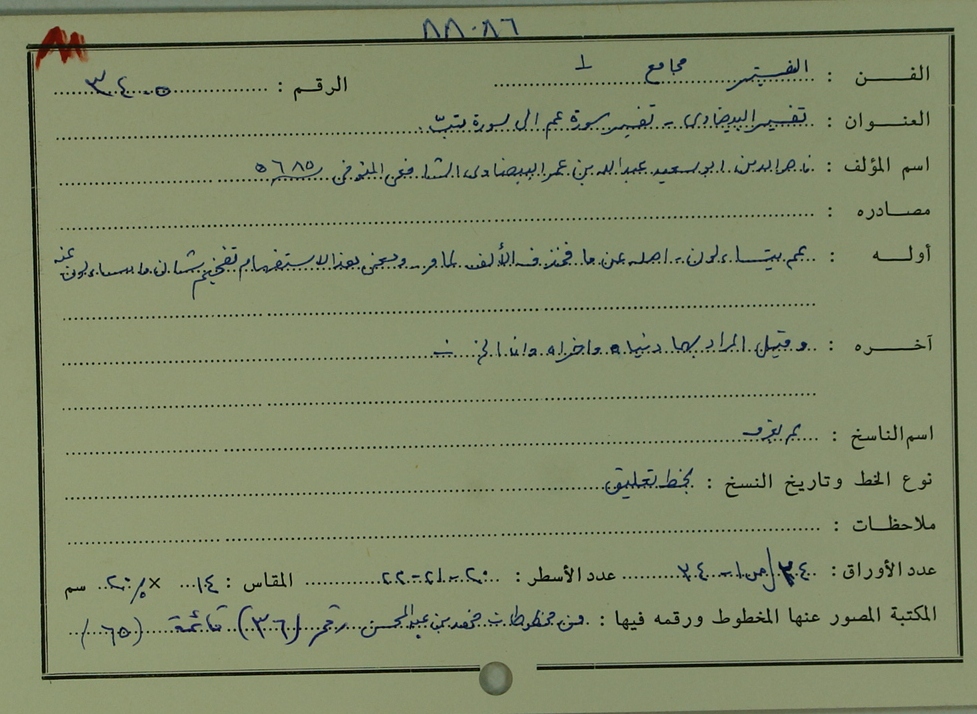 ٨٨٠٨٦
الفــن : التفسير مجاميع الرقم : ٣٤٠٥
العنـوان : تفسير البيضاوي - تفسير سورة عم الى سورة تبت .
اسم المؤلف : ناصر الدين ابو سعيد عبد الله بن عمر البيضاوي الشافعي المتوفى ٦٨٥
مصـادره :
أولــه : عم يتساءلون - اصله عن ما فحذف الألف لما مر ومعنى هذا الاستفهام تفخيم شان ما يتساءلون عنه
آخــره : وقيل المراد بها دنياه واخراه وانما الخ
اسم الناسخ : لم يعرف
نوع الخط وتاريخ النسخ : بخط تعليق
ملاحظـات :
عدد الأوراق : ٣٤ عدد الأسطر : ٢٠ - ٢١ - ٢٢ المقاس : ١٤ × ٢٠ سم
المكتبة المصور عنها المخطوط ورقمه فيها : من مخطوطات بن عبد المحسن رقم (٣٦) قائمة (٦٥)